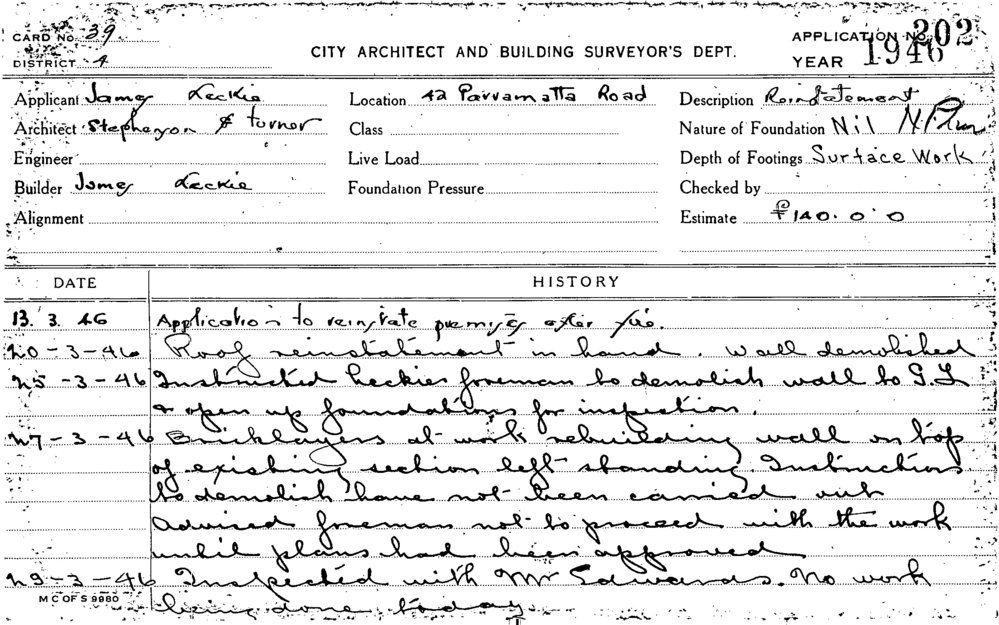 CARD No. 39
DISTRICT 4
CITY ARCHITECT AND BUILDING SURVEYOR'S DEPT.
APPLICATION No. 302
YEAR 1946
Applicant James Leckie
Location 42 Parramatta Road
Description Reinstatement
Architect Stephenson & Turner
Class
Nature of Foundation Nil
Engineer
Live Load
Depth of Footings Surface Work
Builder James Leckie
Foundation Pressure
Checked by
Alignment
Estimate £140.0.0
DATE
HISTORY
13.3.46 Application to reinstate premises after fire.
20-3-46 Roof reinstatement in hand. Wall demolished
25-3-46 Instructed Leckies foreman to demolish wall to G.L
& open up foundations for inspection.
27-3-46 Bricklayers at work rebuilding wall on top
of existing section left standing. Instructions
to demolish have not been carried out
Advised foreman not to proceed with the work
until plans had been approved
29-3-46 Inspected with Mr Edwards. No work
being done today.
M C OF S 9980